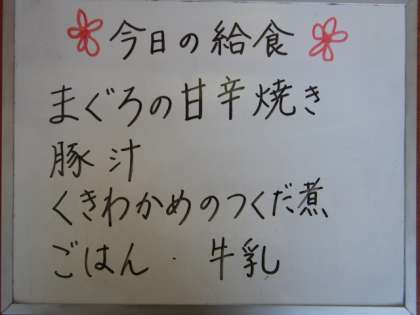 今日の給食
まぐろの甘辛焼き
豚汁
くきわかめのつくだ煮
ごはん・牛乳